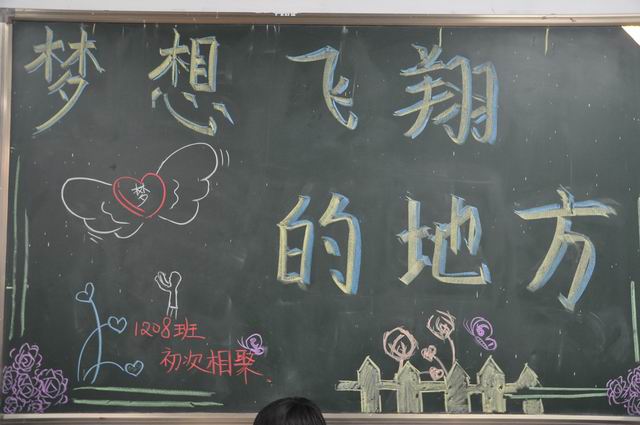 梦想飞翔
的地方
梦
1208班
初次相聚